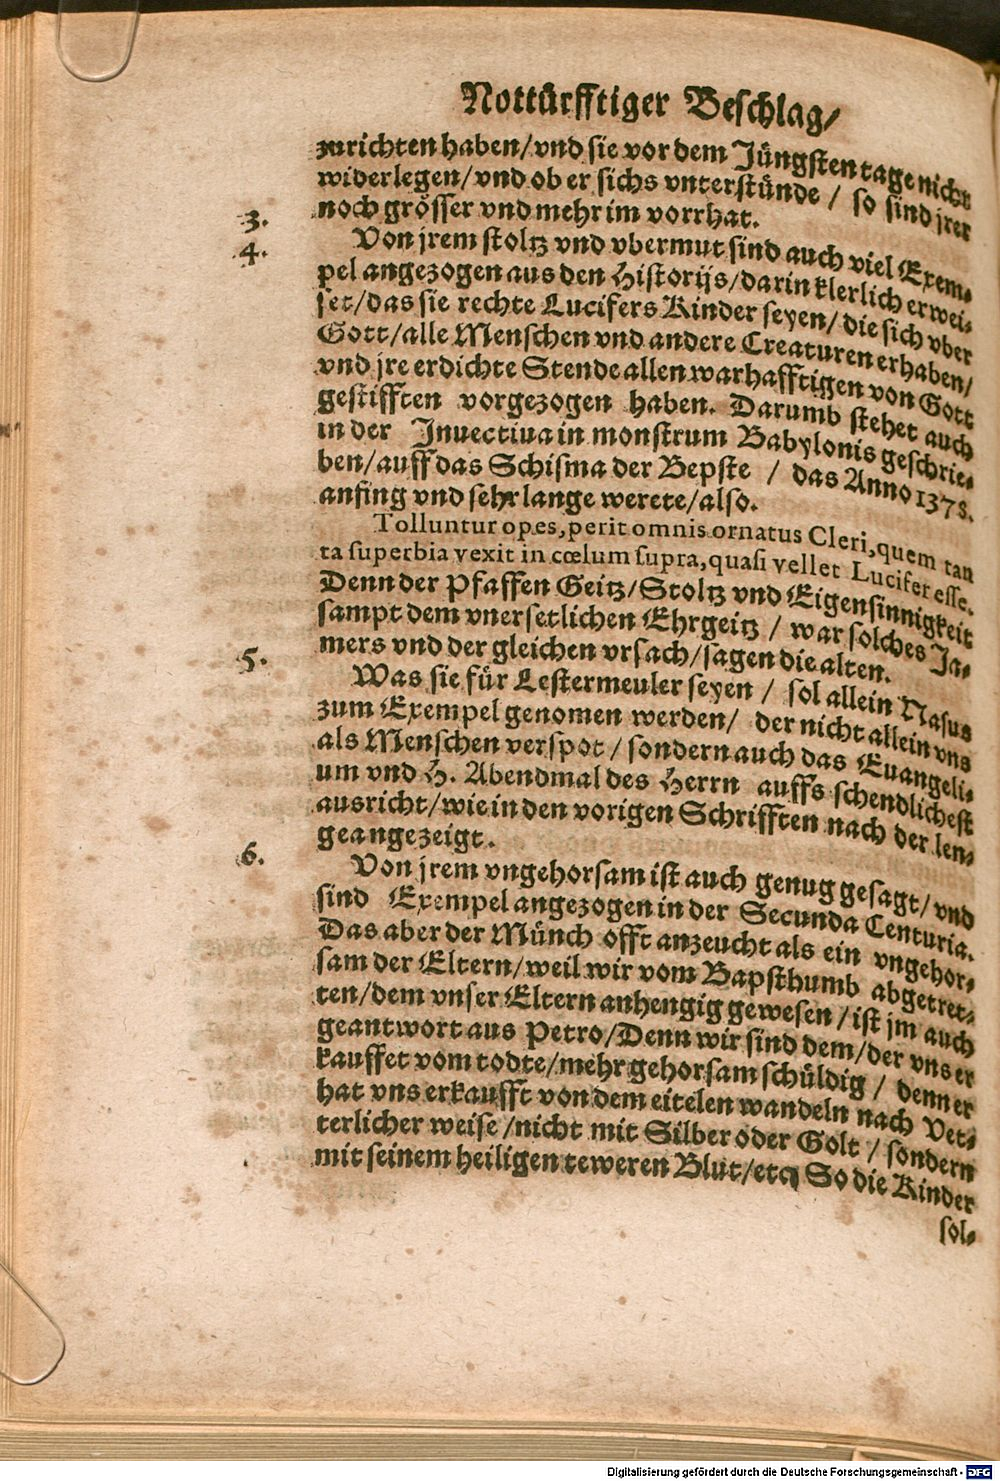 Nottürfftiger Beschlag/
zurichten haben/vnd sie vor dem Jüngsten tage nicht
widerlegen/vnd ob er sichs vnterstünde / so sind jrer
3. noch grösser vnd mehr im vorrhat.
4. Von jrem stoltz vnd vbermut sind auch viel Exem⸗
pel angezogen aus den Historijs/darin klerlich erwei⸗
set/das sie rechte Lucifers Kinder seyen/die sich vber
Gott/alle Menschen vnd andere Creaturen erhaben/
vnd jre erdichte Stende allen warhafftigen von Gott
gestifften vorgezogen haben. Darumb stehet auch
in der Inuectiua in monstrum Babylonis geschrie⸗
ben/auff das Schisma der Bepste / das Anno 1378.
anfing vnd sehr lange werete/also.
Tolluntur opes, perit omnis ornatus Cleri, quem tan
ta superbia vexit in cœlum supra, quasi vellet Lucifer esse.
Denn der Pfaffen Geitz/Stoltz vnd Eigensinnigkeit
sampt dem vnersetlichen Ehrgeitz / war solches Ja⸗
mers vnd der gleichen vrsach/sagen die alten.
5. Was sie für Lestermeuler seyen / sol allein Nasus
zum Exempel genomen werden/ der nicht allein vns
als Menschen verspot / sondern auch das Euangeli⸗
um vnd H. Abendmal des Herrn auffs schendlichest
ausricht/wie in den vorigen Schrifften nach der len⸗
ge angezeigt.
6. Von jrem vngehorsam ist auch genug gesagt/ vnd
sind Exempel angezogen in der Secunda Centuria.
Das aber der Münch offt anzeucht als ein vngehor⸗
sam der Eltern/weil wir vom Bapsthumb abgetret⸗
ten/dem vnser Eltern anhengig gewesen / ist jm auch
geantwort aus Petro/Denn wir sind dem/der vns er
kauffet vom todte/mehr gehorsam schüldig / denn er
hat vns erkaufft von dem eitelen wandeln nach Vet⸗
terlicher weise /nicht mit Silber oder Golt / sondern
mit seinem heiligen teweren Blut/etc. So die Kinder
sol⸗
Digitalisierung gefördert durch die Deutsche Forschungsgemeinschaft - DFG